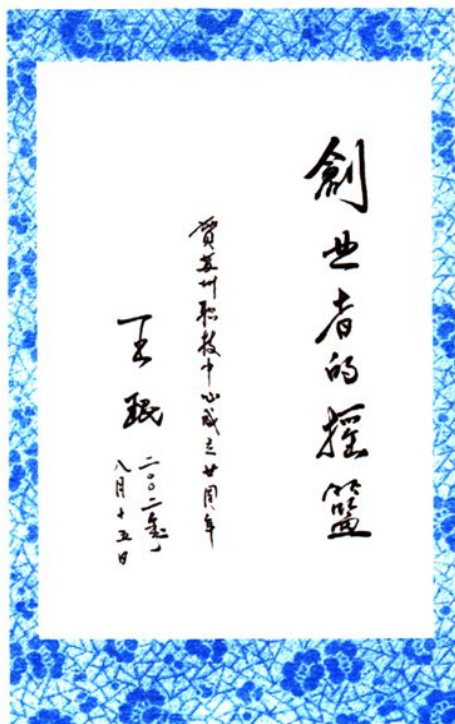 創业者的摇篮
贺苏州职技中心成立廿周年
王珉
二〇〇二年
八月十五日